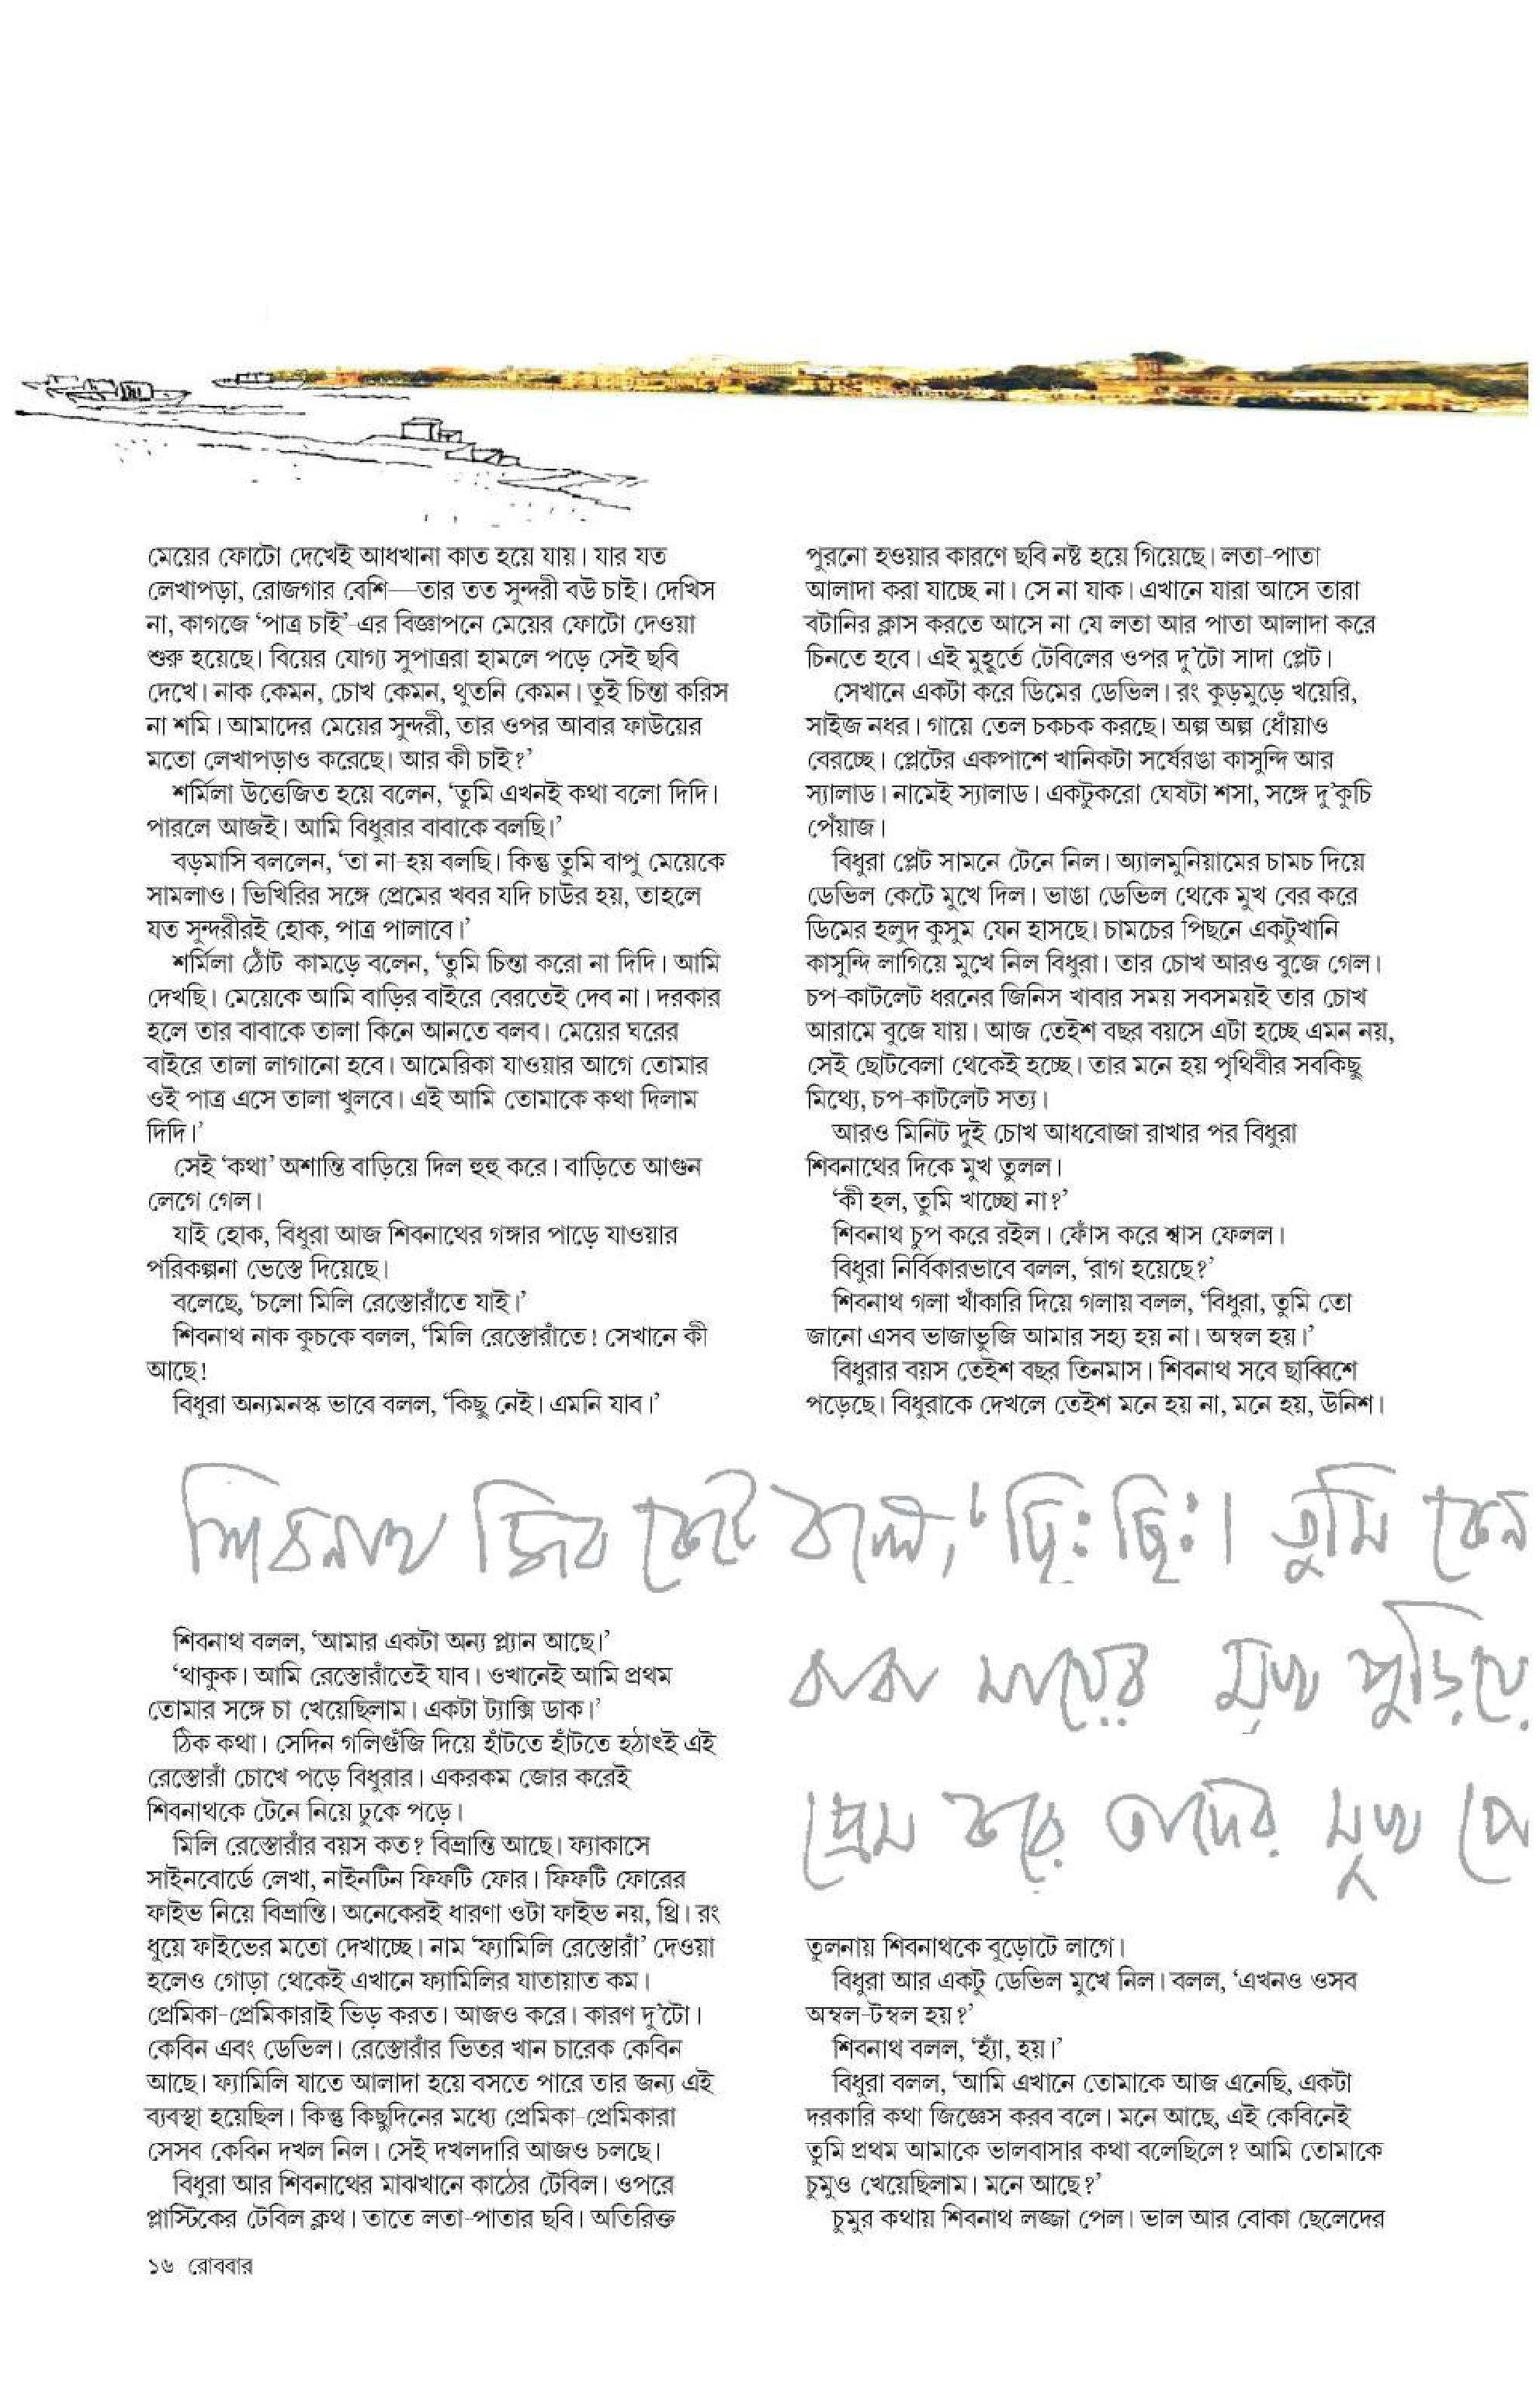 মেয়ের ফোটো দেখেই আধখানা কাত হয়ে যায়। যার যত
লেখাপড়া, রোজগার বেশি—তার তত সুন্দরী বউ চাই। দেখিস
না, কাগজে ‘পাত্র চাই’-এর বিজ্ঞাপনে মেয়ের ফোটো দেওয়া
শুরু হয়েছে। বিয়ের যোগ্য সুপাত্ররা হামলে পড়ে সেই ছবি
দেখে। নাক কেমন, চোখ কেমন, থুতনি কেমন। তুই চিন্তা করিস
না শমি। আমাদের মেয়ের সুন্দরী, তার ওপর আবার ফাউয়ের
মতো লেখাপড়াও করেছে। আর কী চাই?’
শর্মিলা উত্তেজিত হয়ে বলেন, ‘তুমি এখনই কথা বলো দিদি।
পারলে আজই। আমি বিধুরার বাবাকে বলছি।’
বড়মাসি বললেন, ‘তা না-হয় বলছি। কিন্তু তুমি বাপু মেয়েকে
সামলাও। ভিখিরির সঙ্গে প্রেমের খবর যদি চাউর হয়, তাহলে
যত সুন্দরীরই হোক, পাত্র পালাবে।’
শর্মিলা ঠোঁট কামড়ে বলেন, ‘তুমি চিন্তা করো না দিদি। আমি
দেখছি। মেয়েকে আমি বাড়ির বাইরে বেরতেই দেব না। দরকার
হলে তার বাবাকে তালা কিনে আনতে বলব। মেয়ের ঘরের
বাইরে তালা লাগানো হবে। আমেরিকা যাওয়ার আগে তোমার
ওই পাত্র এসে তালা খুলবে। এই আমি তোমাকে কথা দিলাম
দিদি।’
সেই ‘কথা’ অশান্তি বাড়িয়ে দিল হুহু করে। বাড়িতে আগুন
লেগে গেল।
যাই হোক, বিধুরা আজ শিবনাথের গঙ্গার পাড়ে যাওয়ার
পরিকল্পনা ভেস্তে দিয়েছে।
বলেছে, ‘চলো মিলি রেস্তোরাঁতে যাই।’
শিবনাথ নাক কুচকে বলল, ‘মিলি রেস্তোরাঁতে! সেখানে কী
আছে!
বিধুরা অন্যমনস্ক ভাবে বলল, ‘কিছু নেই। এমনি যাব।’
পুরনো হওয়ার কারণে ছবি নষ্ট হয়ে গিয়েছে। লতা-পাতা
আলাদা করা যাচ্ছে না। সে না যাক। এখানে যারা আসে তারা
বটানির ক্লাস করতে আসে না যে লতা আর পাতা আলাদা করে
চিনতে হবে। এই মুহূর্তে টেবিলের ওপর দু’টো সাদা প্লেট।
সেখানে একটা করে ডিমের ডেভিল। রং কুড়মুড়ে খয়েরি,
সাইজ নধর। গায়ে তেল চকচক করছে। অল্প অল্প ধোঁয়াও
বেরচ্ছে। প্লেটের একপাশে খানিকটা সর্ষেরঙা কাসুন্দি আর
স্যালাড। নামেই স্যালাড। একটুকরো ঘেষটা শসা, সঙ্গে দু’কুচি
পেঁয়াজ।
বিধুরা প্লেট সামনে টেনে নিল। অ্যালমুনিয়ামের চামচ দিয়ে
ডেভিল কেটে মুখে দিল। ভাঙা ডেভিল থেকে মুখ বের করে
ডিমের হলুদ কুসুম যেন হাসছে। চামচের পিছনে একটুখানি
কাসুন্দি লাগিয়ে মুখে নিল বিধুরা। তার চোখ আরও বুজে গেল।
চপ-কাটলেট ধরনের জিনিস খাবার সময় সবসময়ই তার চোখ
আরামে বুজে যায়। আজ তেইশ বছর বয়সে এটা হচ্ছে এমন নয়,
সেই ছোটবেলা থেকেই হচ্ছে। তার মনে হয় পৃথিবীর সবকিছু
মিথ্যে, চপ-কাটলেট সত্য।
আরও মিনিট দুই চোখ আধবোজা রাখার পর বিধুরা
শিবনাথের দিকে মুখ তুলল।
‘কী হল, তুমি খাচ্ছো না?’
শিবনাথ চুপ করে রইল। ফোঁস করে শ্বাস ফেলল।
বিধুরা নির্বিকারভাবে বলল, ‘রাগ হয়েছে?’
শিবনাথ গলা খাঁকারি দিয়ে গলায় বলল, ‘বিধুরা, তুমি তো
জানো এসব ভাজাভুজি আমার সহ্য হয় না। অম্বল হয়।’
বিধুরার বয়স তেইশ বছর তিনমাস। শিবনাথ সবে ছাব্বিশে
পড়েছে। বিধুরাকে দেখলে তেইশ মনে হয় না, মনে হয়, উনিশ।
শিবনাথ জিব কেটে বলে, ‘ছিঃ ছিঃ। তুমি কেন
বাবা মায়ের মুখ পুড়িয়ে
প্রেম করে তাদের মুখ পো
শিবনাথ বলল, ‘আমার একটা অন্য প্ল্যান আছে।’
‘থাকুক। আমি রেস্তোরাঁতেই যাব। ওখানেই আমি প্রথম
তোমার সঙ্গে চা খেয়েছিলাম। একটা ট্যাক্সি ডাক।’
ঠিক কথা। সেদিন গলিগুঁজি দিয়ে হাঁটতে হাঁটতে হঠাৎই এই
রেস্তোরাঁ চোখে পড়ে বিধুরার। একরকম জোর করেই
শিবনাথকে টেনে নিয়ে ঢুকে পড়ে।
মিলি রেস্তোরাঁর বয়স কত? বিভ্রান্তি আছে। ফ্যাকাসে
সাইনবোর্ডে লেখা, নাইনটিন ফিফটি ফোর। ফিফটি ফোরের
ফাইভ নিয়ে বিভ্রান্তি। অনেকেরই ধারণা ওটা ফাইভ নয়, থ্রি। রং
ধুয়ে ফাইভের মতো দেখাচ্ছে। নাম ‘ফ্যামিলি রেস্তোরাঁ’ দেওয়া
হলেও গোড়া থেকেই এখানে ফ্যামিলির যাতায়াত কম।
প্রেমিকা-প্রেমিকারাই ভিড় করত। আজও করে। কারণ দু’টো।
কেবিন এবং ডেভিল। রেস্তোরাঁর ভিতর খান চারেক কেবিন
আছে। ফ্যামিলি যাতে আলাদা হয়ে বসতে পারে তার জন্য এই
ব্যবস্থা হয়েছিল। কিন্তু কিছুদিনের মধ্যে প্রেমিকা-প্রেমিকারা
সেসব কেবিন দখল নিল। সেই দখলদারি আজও চলছে।
বিধুরা আর শিবনাথের মাঝখানে কাঠের টেবিল। ওপরে
প্লাস্টিকের টেবিল ক্লথ। তাতে লতা-পাতার ছবি। অতিরিক্ত
তুলনায় শিবনাথকে বুড়োটে লাগে।
বিধুরা আর একটু ডেভিল মুখে নিল। বলল, ‘এখনও ওসব
অম্বল-টম্বল হয়?’
শিবনাথ বলল, ‘হ্যাঁ, হয়।’
বিধুরা বলল, ‘আমি এখানে তোমাকে আজ এনেছি, একটা
দরকারি কথা জিজ্ঞেস করব বলে। মনে আছে, এই কেবিনেই
তুমি প্রথম আমাকে ভালবাসার কথা বলেছিলে? আমি তোমাকে
চুমুও খেয়েছিলাম। মনে আছে?’
চুমুর কথায় শিবনাথ লজ্জা পেল। ভাল আর বোকা ছেলেদের
১৬ রোববার